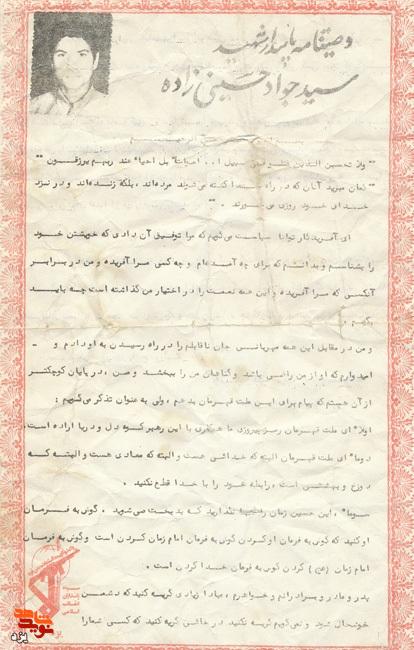 وصیتنامه پاسدار شهید
سید جواد حسینی زاده
"ولا تحسبن الذین قتلو فی سبیل ا... امواتا" بل احیاء عند ربهم یرزقون"
"گمان مبرید آنان که در راه خدا کشته می شوند مرده‌اند، بلکه زنده‌اند و در نزد
خدای خود روزی می خورند. "
ای آفریدگار توانا سپاست می گویم که مرا توفیق آن دادی که خویشتن خود
را بشناسم و بدانم که برای چه آمده‌ام و چه کسی مرا آفریده و من در برابر
آنکس که مرا آفریده و این همه نعمت را در اختیار من گذاشته است چه باید
بگویم.
و من در مقابل این همه مهربانی جان ناقابلم را در راه رسیدن به او دادم و -
امیدوارم که او از من راضی باشد و گناهان من را ببخشد و من، در پایان کوچکتر
از آن هستم که پیام برای این ملت قهرمان بدهم، ولی به عنوان تذکر می گویم:
اولا" ای ملت قهرمان رمز پیروزی ما همفکری با این رهبر که دل و دریا اراده است.
دوما" ای ملت قهرمان البته که خدائی هست و البته که معادی هست و البته که
دوزخ و بهشتی است، رابطه خود را با خدا قطع نکنید.
سوما"، این حسین زمان را تنها نگذارید که بدبخت می شوید. گوش به فرمان
او کنید که گوش به فرمان او کردن گوش به فرمان امام زمان کردن است و گوش به فرمان
امام زمان (عج) کردن گوش به فرمان خدا کردن است.
پدر و مادر و برادرانم و خواهرم، مبادا زیادی گریه کنید که دشمن
خوشحال شود و نمی گویم گریه نکنید در خفائی گریه کنید که کسی شما را
سپاه
پاسداران
انقلاب
اسلامی
نوید شاهد